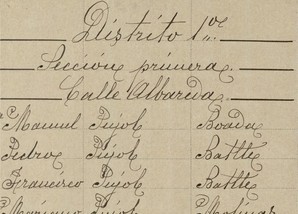 Distrito 1º.
Sección primera.
Calle Albareda.
Manuel Pujol Boada
Pedro Pujol Batlle
Francisco Pujol Batlle
Mariano Pujol Molinas